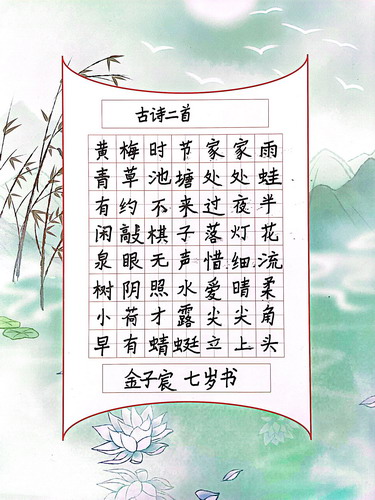 古诗二首
黄梅时节家家雨
青草池塘处处蛙
有约不来过夜半
闲敲棋子落灯花
泉眼无声惜细流
树阴照水爱晴柔
小荷才露尖尖角
早有蜻蜓立上头
金子宸 七岁书